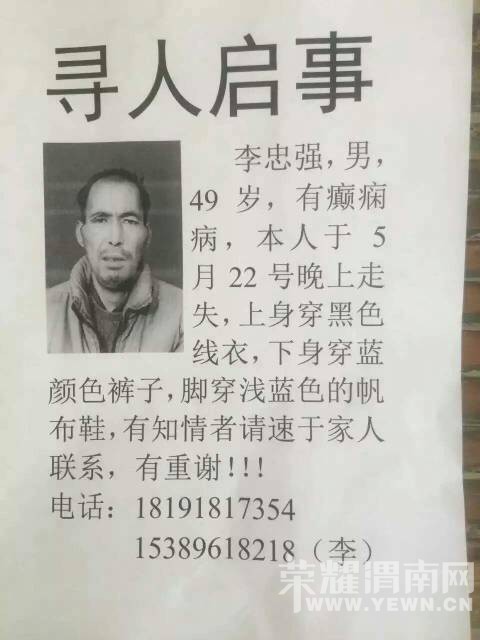 寻人启事
李忠强，男，
49 岁，有癫痫
病，本人于 5
月 22 号晚上走
失，上身穿黑色
线衣，下身穿蓝
颜色裤子，脚穿浅蓝色的帆
布鞋，有知情者请速于家人
联系，有重谢！！！
电话：18191817354
15389618218（李）
荣耀渭南网
WWW.YEWN.CN